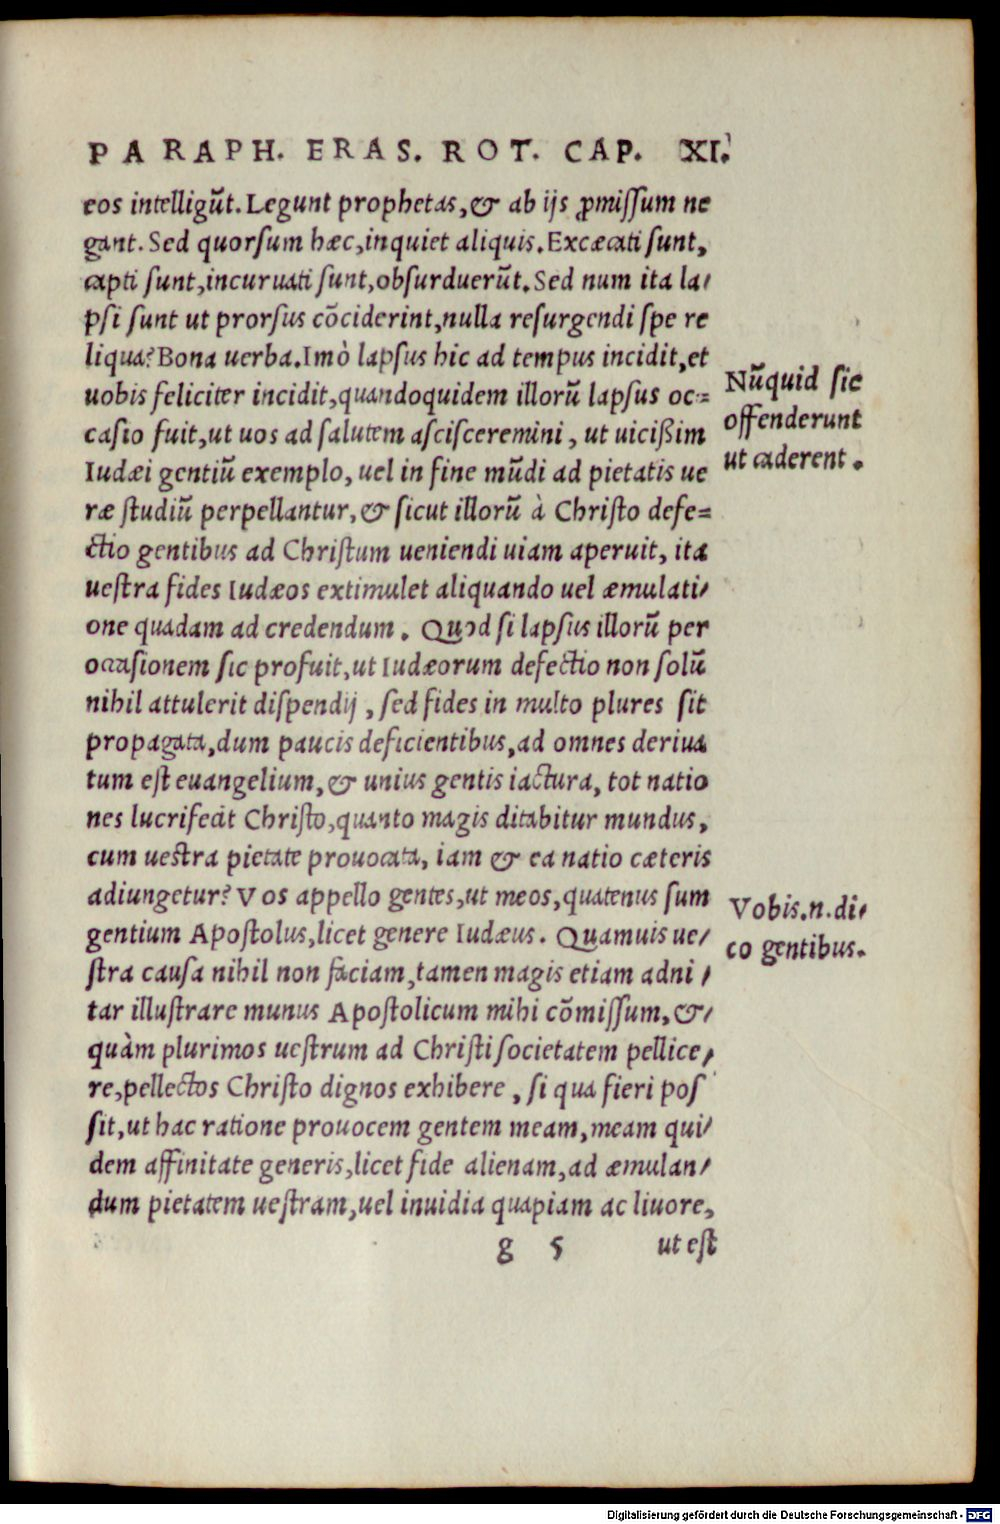 PARAPH. ERAS. ROT. CAP. XI.
eos intelligūt. Legunt prophetas, & ab ijs ꝓmissum ne
gant. Sed quorsum hæc, inquiet aliquis. Excæcati sunt,
capti sunt, incuruati sunt, obsurduerūt. Sed num ita la/
psi sunt ut prorsus cōciderint, nulla resurgendi spe re
liqua? Bona uerba. Imò lapsus hic ad tempus incidit, et
uobis feliciter incidit, quandoquidem illorū lapsus oc=
casio fuit, ut uos ad salutem ascisceremini, ut uicißim
Iudæi gentiū exemplo, uel in fine mūdi ad pietatis ue
ræ studiū perpellantur, & sicut illorū à Christo defe=
ctio gentibus ad Christum ueniendi uiam aperuit, ita
uestra fides Iudæos extimulet aliquando uel æmulati/
one quadam ad credendum. Quod si lapsus illorū per
occasionem sic profuit, ut Iudæorum defectio non solū
nihil attulerit dispendij, sed fides in multo plures sit
propagata, dum paucis deficientibus, ad omnes deriua
tum est euangelium, & unius gentis iactura, tot natio
nes lucrifecit Christo, quanto magis ditabitur mundus,
cum uestra pietate prouocata, iam & ea natio cæteris
adiungetur? Vos appello gentes, ut meos, quatenus sum
gentium Apostolus, licet genere Iudæus. Quamuis ue/
stra causa nihil non faciam, tamen magis etiam adni/
tar illustrare munus Apostolicum mihi cōmissum, &/
quàm plurimos uestrum ad Christi societatem pellice/
re, pellectos Christo dignos exhibere, si qua fieri pos
sit, ut hac ratione prouocem gentem meam, meam qui/
dem affinitate generis, licet fide alienam, ad æmulan/
dum pietatem uestram, uel inuidia quapiam ac liuore,
g 5 ut est
Nūquid sic
offenderunt
ut caderent.
Vobis.n.di/
co gentibus.
Digitalisierung gefördert durch die Deutsche Forschungsgemeinschaft - DFG